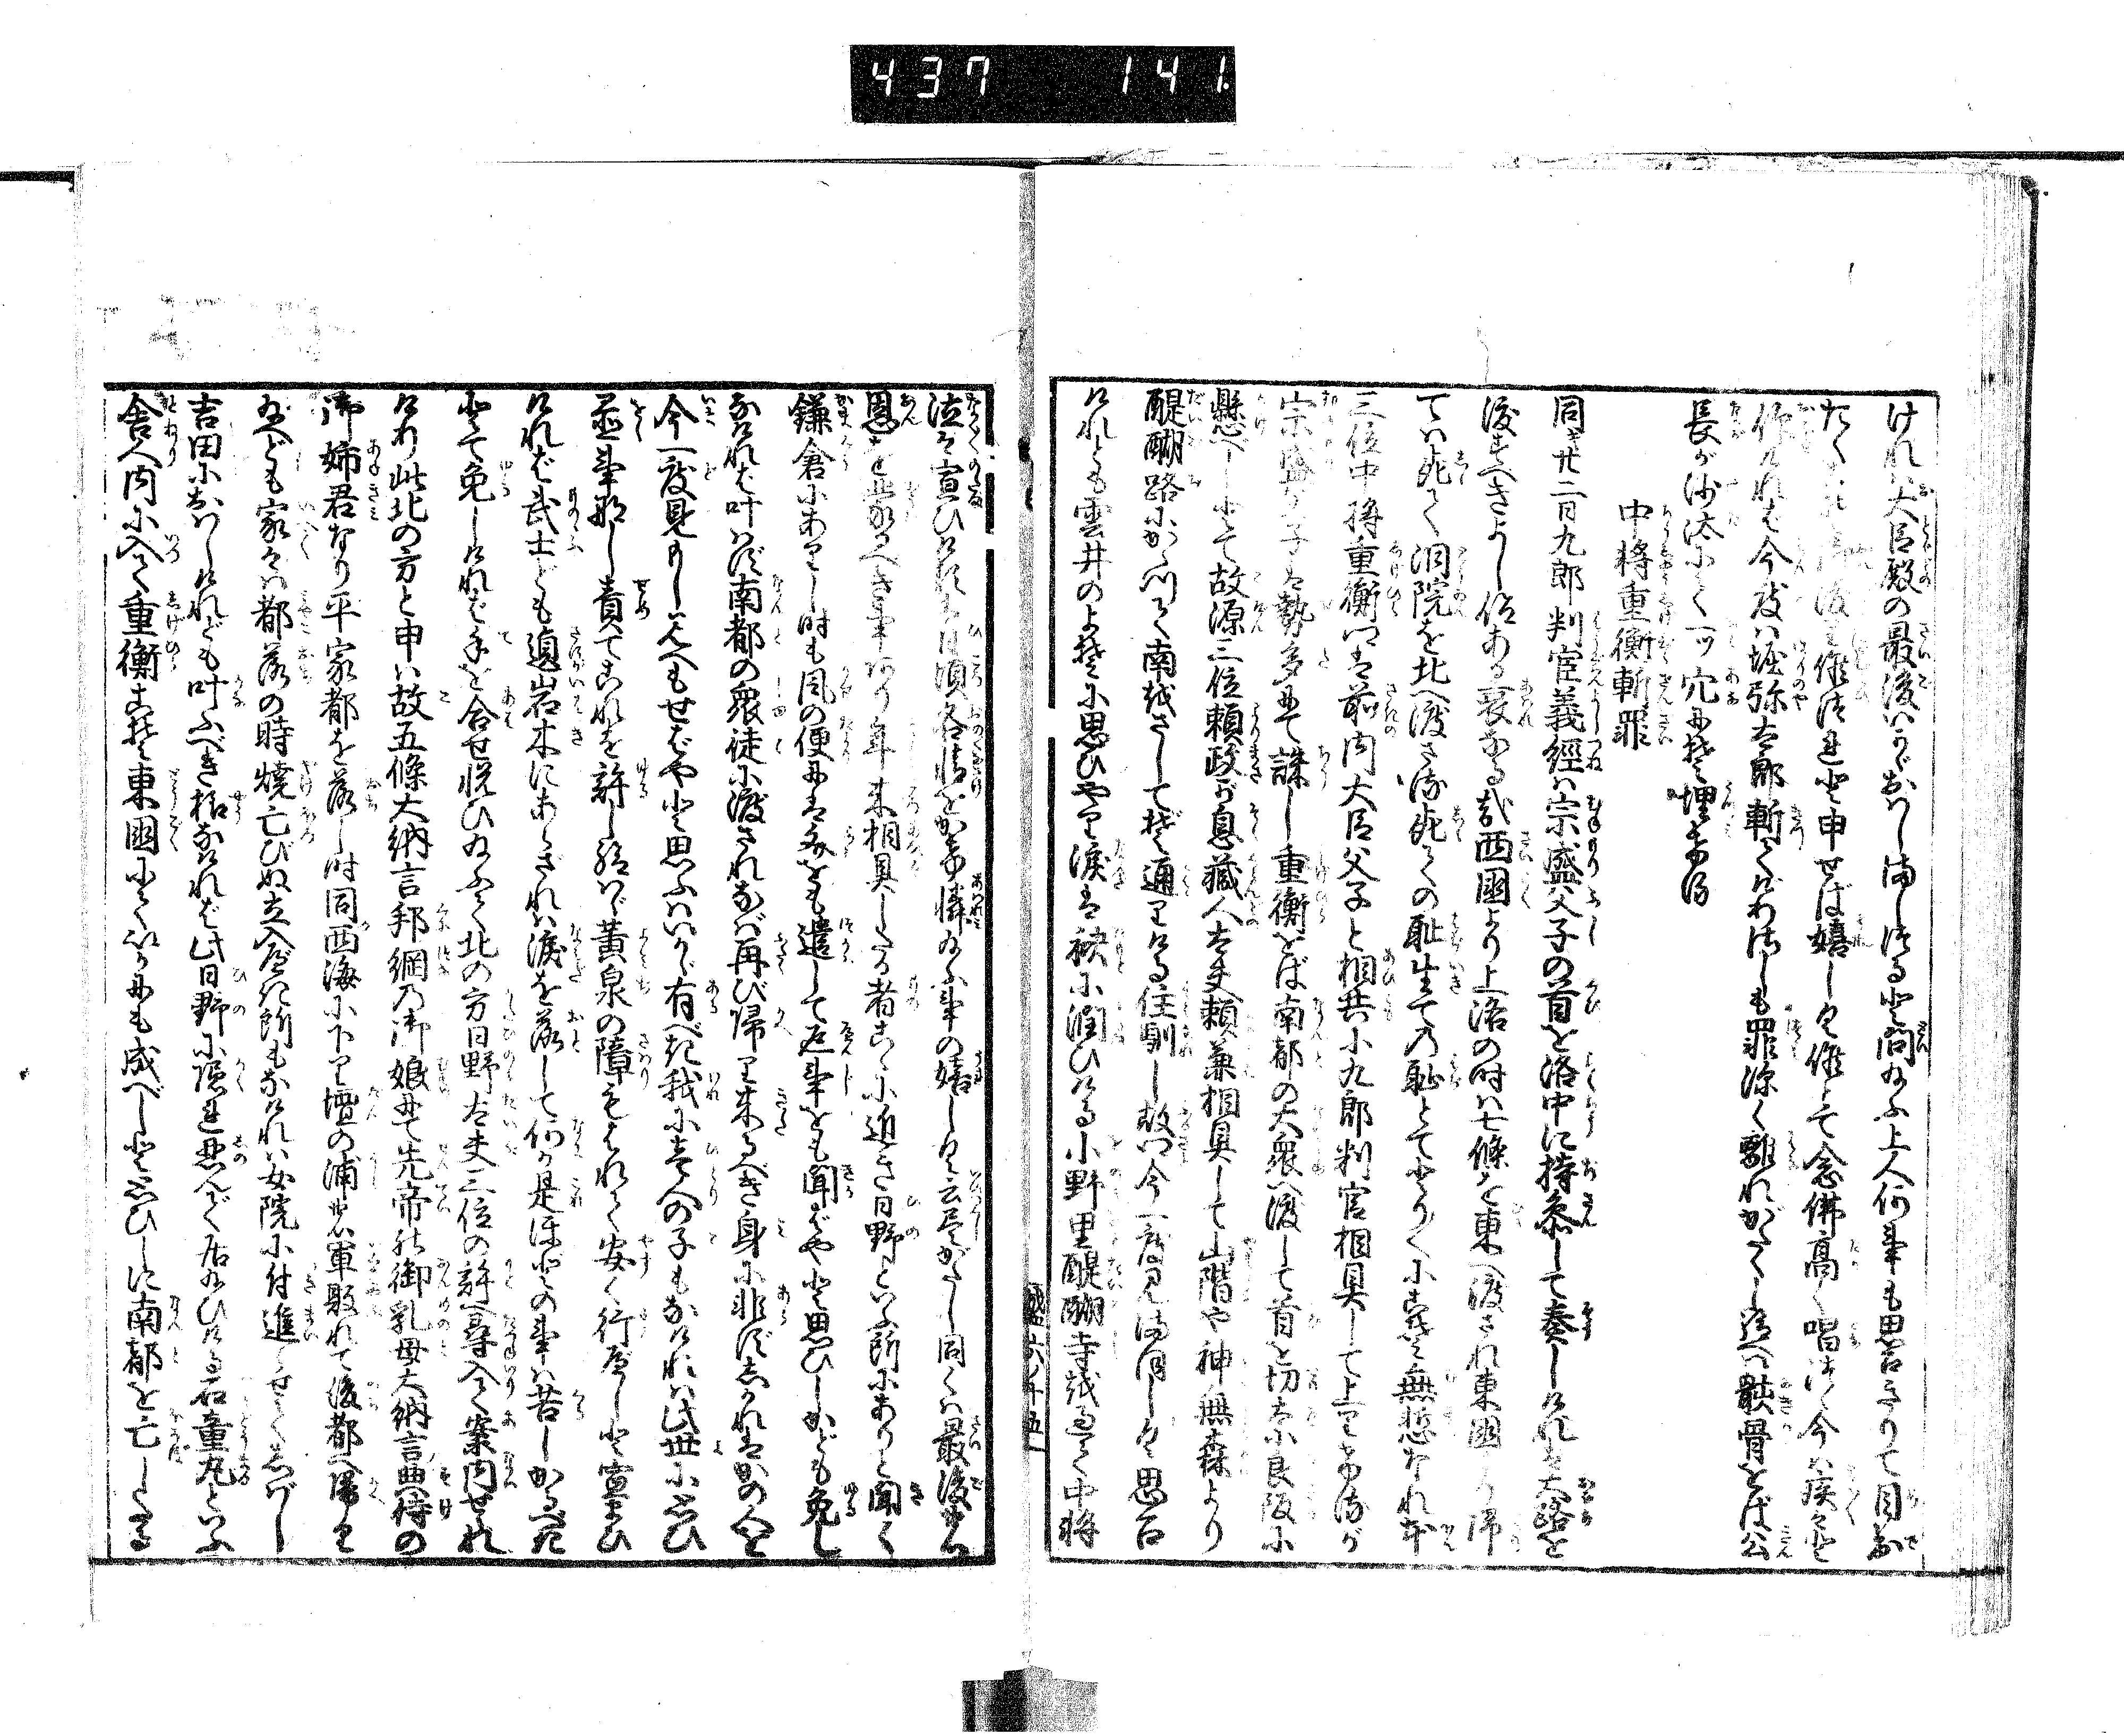 437 141
けれバ大臣殿の最後いかゞおハし満しつると問給ふ上人何事も思召きりて目出
たく
仰けれバ今度ハ堀弥太郎斬てげりけしも罪深く離れがたくし給へバ骸骨をば公
長が沙汰にて一ツ穴にぞ埋ける
中将重衡斬罪
同き廿二日九郎判官義經ハ宗盛父子の首を洛中に持参して奏しけれバ大路を
渡すべきよし仰ある哀なる哉西國より上洛の時ハ七條を東へ渡され東國より帰
てハ死て洞院を北へ渡さる死ての恥生ての恥とてとり〳〵にこそ無慙なれ本
三位中将重衡ハ前内大臣父子と相共に九郎判官相具して上りけるが
宗盛父子ハ勢多にて誅し重衡をば南都の大衆へ渡して首を切奈良阪に
懸べしとて故源三位頼政が息蔵人大夫頼兼相具して山階や神無森より
醍醐路にかゝつて南をさしてぞ通りける住馴し故郷今一度見満ほしく思召
けれども雲井のよそに思ひやり涙に袂ぞ潤ひける小野里醍醐寺を過て中将
盛六ノ十五
泣々宣ひけるハ日頃各情をかけ憐給ふ事の嬉しく云尽がたし同くハ最後の
恩を蒙るべき事あり年来相具したる者こゝに近き日野といふ所にありと聞く
鎌倉にありし時も風の便にハ文をも遣して返事をも聞ばやと思ひしかども免し
なけれバ叶ハず南都の衆徒に渡されなバ再び帰り来るべき身に非ずされバかの人を
今一度見もし見えもせばやと思ふハいかゞ有べき我に一人の子もなけれバ此世に思ひ
置事那し責てこれを許し給ハゞ黄泉の障もはれて安く行べしと宣ひ
けれバ武士ども遉岩木にあらざれバ涙を落して何か是ほどの事ハ苦しかるべき
とて免しけれバ手を合せ悦ひ給ふて北の方日野大夫三位の許へ尋入て案内せれ
けり此北の方と申ハ故五條大納言邦綱乃御娘にて先帝の御乳母大納言典侍の
御姉君なり平家都を落し時同西海に下り壇の浦の軍敗れて後都へ帰り
給へども家々ハ都落の時焼亡びぬ立入べき所もなけれバ女院に付進らせて志ばし
吉田におハしけれども叶ふべき様なけれバ此日野に隠れ忍んで居給ひける石童丸といふ
舎人内に入て重衡こそ東國にていかにも成べしと思ひしに南都を亡したる